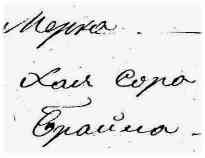 Мерка. —
Хая Сора
Брайна.